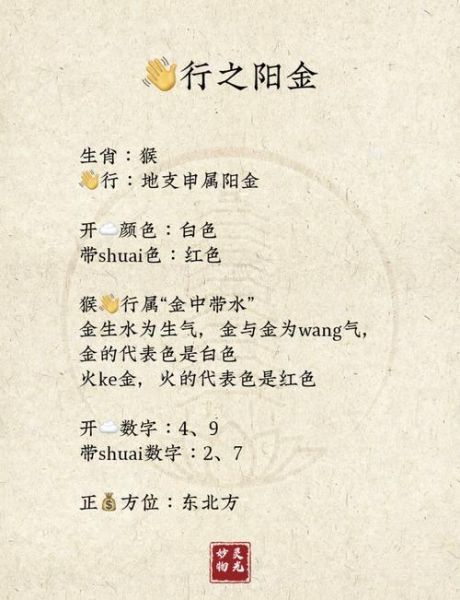 👋行之阳金
生肖：猴
👋行：地支申属阳金
开☁️颜色：白色
带shuai色：红色
猴👋行属“金中带水”
金生水为生气，金与金为wang气，
金的代表色是白色
火ke金，火的代表色是红色
开☁️数字：4、9
带shuai数字：2、7
正💰方位：东北方
灵光
妙物